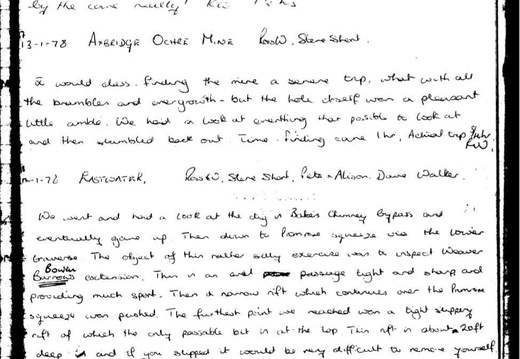 by the cave really!
13-1-78 AXBRIDGE OCHRE MINE Ross W, Steve Short.
I would class finding the mine a severe trip, what with all
the brambles and overgrowth - but the hole itself was a pleasant
little amble. We had a look at everything that possible to look at
and then stumbled back out. Time: finding cave 1hr, Actual trip
R.W.
-1-78 EASTWATER, Ross W, Steve Short, Pete + Alison, Dave Walker.
We went and had a look at the dig in Bakers Chimney Bypass and
eventually gave up. Then down to Primrose squeeze via the lower
traverse. The object of this rather silly exercise was to inspect Weaver
Bowen
Burrows extension. This is an passage tight and sharp and
providing much sport. Then a narrow rift which continues over the Primrose
squeeze was pushed. The furthest point we reached was a tight slippery
rift of which the only passable bit is at the top. This rift is about 20ft
deep and if you slipped it would be very difficult to remove yourself